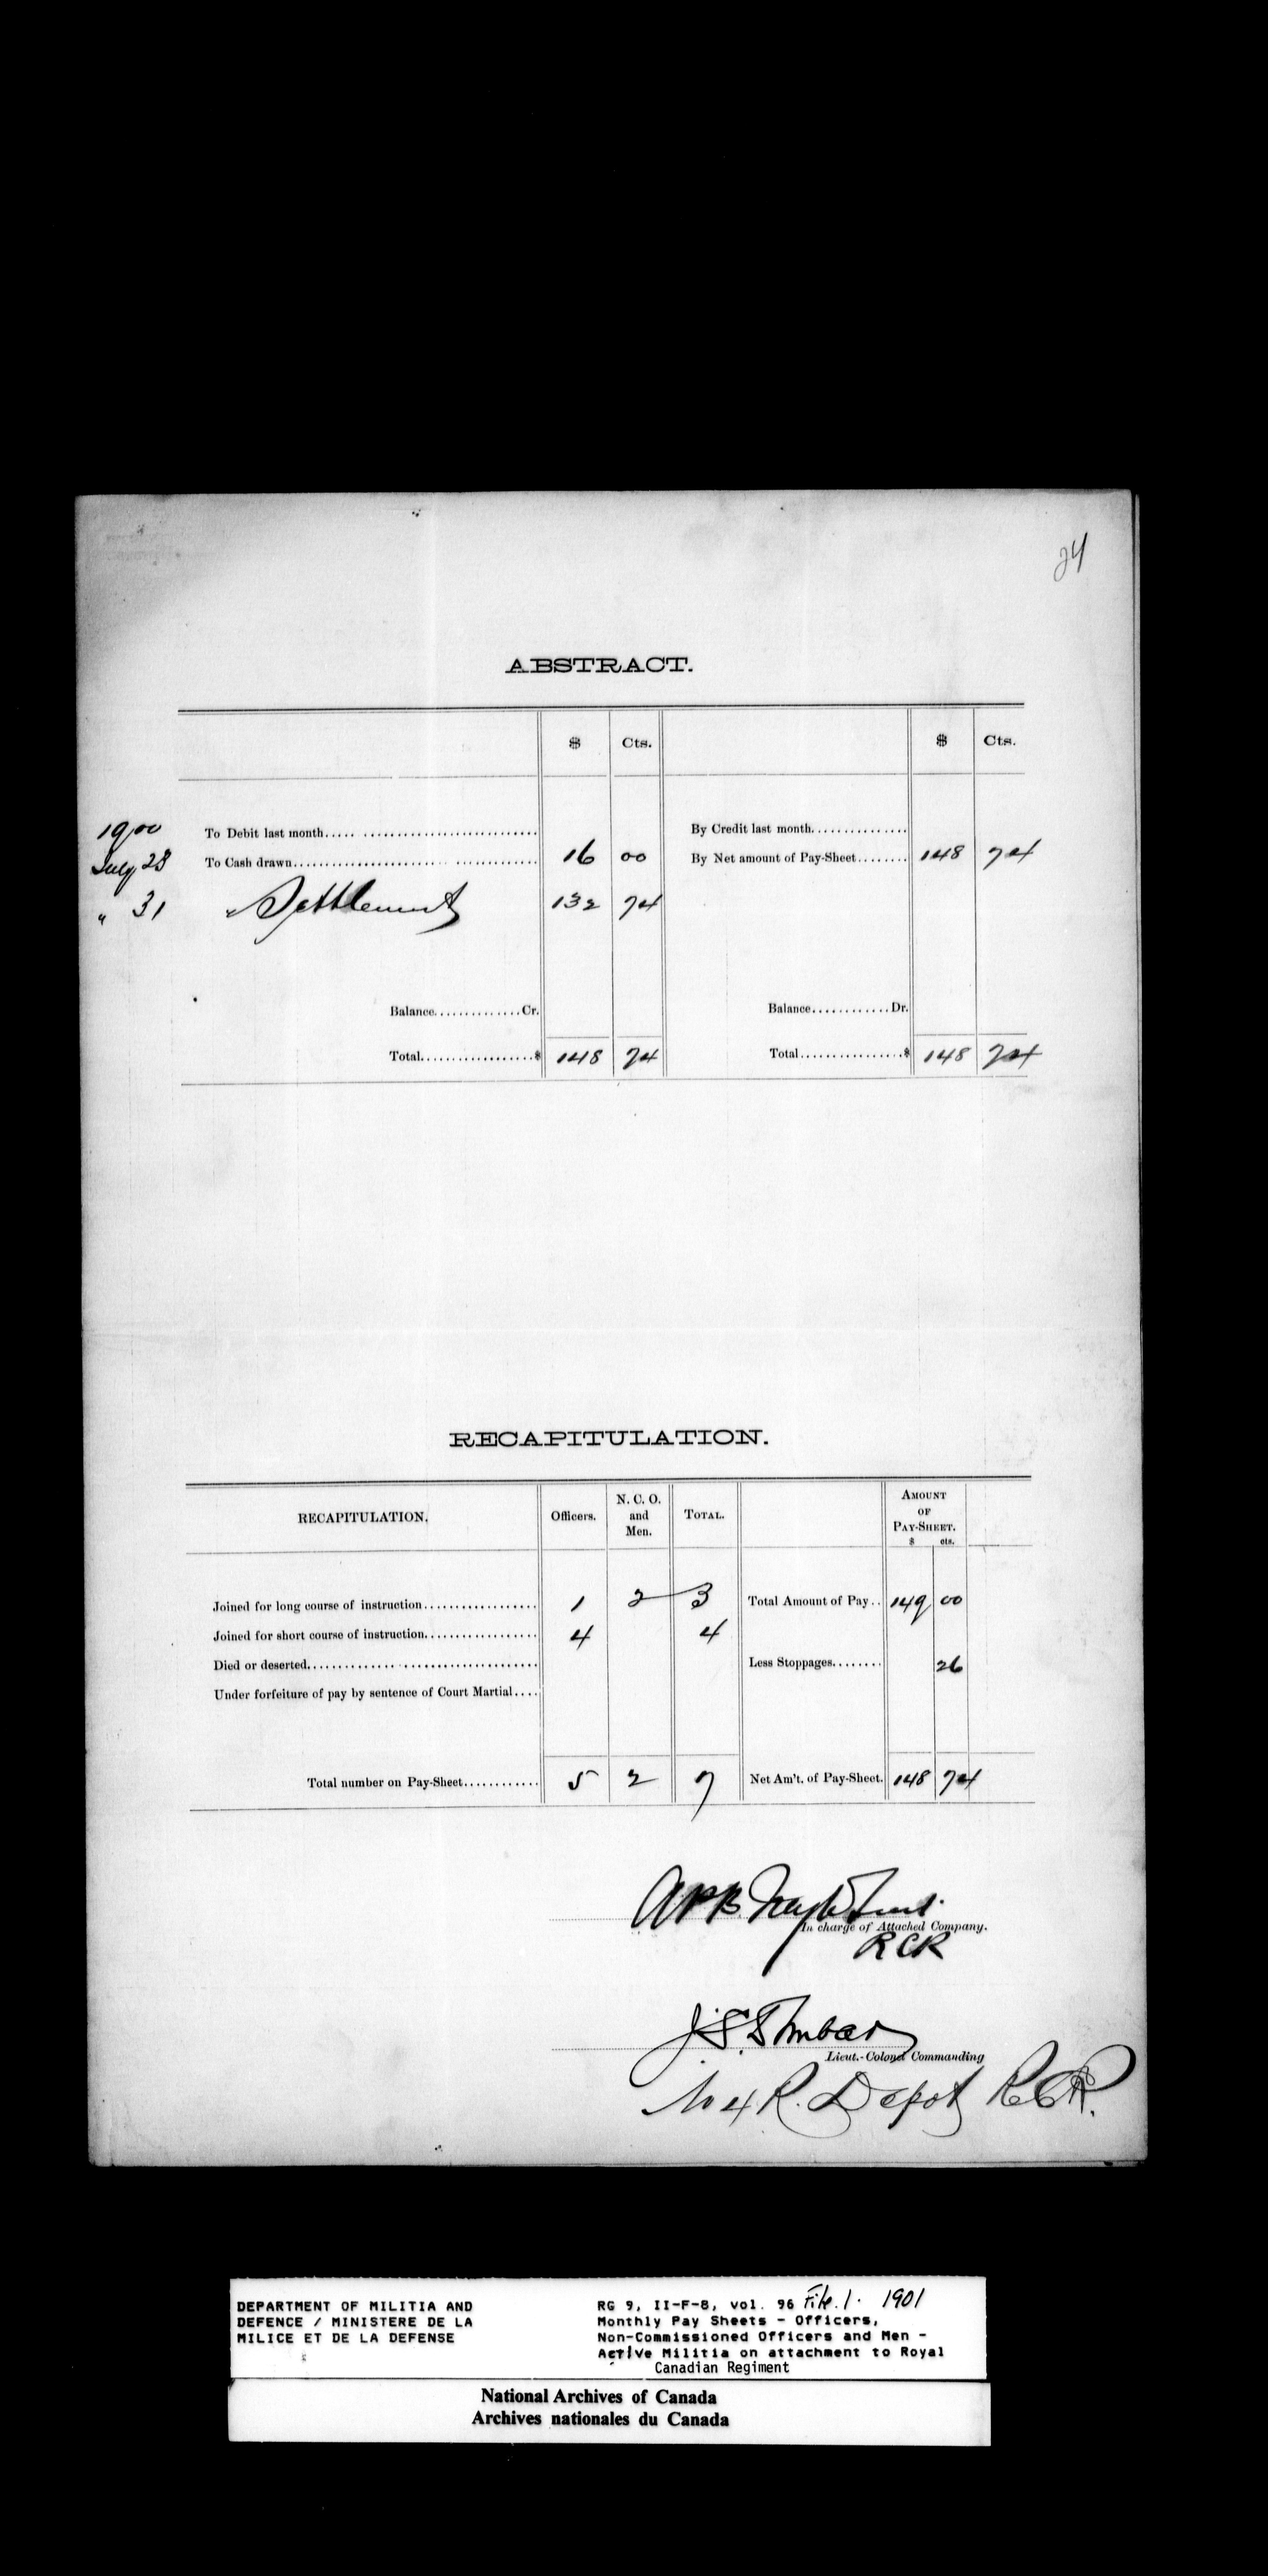 24
ABSTRACT.
$ Cts. $ Cts.
1900 To Debit last month By Credit last month
July 28 To Cash drawn 16 00 By Net amount of Pay-Sheet 148 74
" 31 " Settlement 132 74
Balance Cr. Balance Dr.
Total $ 148 74 Total $ 148 74
RECAPITULATION.
RECAPITULATION. Officers. N. C. O. and Men. TOTAL. AMOUNT OF PAY-SHEET. $ cts.
Joined for long course of instruction 1 2 3 Total Amount of Pay 149 00
Joined for short course of instruction 4 4
Died or deserted Less Stoppages 26
Under forfeiture of pay by sentence of Court Martial
Total number on Pay-Sheet 5 2 7 Net Am't. of Pay-Sheet. 148 74
In charge of Attached Company.
RCR
J.S.
Lieut.-Colonel Commanding
No 4 R. Depot RCR.
DEPARTMENT OF MILITIA AND
DEFENCE / MINISTERE DE LA
MILICE ET DE LA DEFENSE
RG 9, II-F-8, vol. 96 File.1. 1901
Monthly Pay Sheets - Officers,
Non-Commissioned Officers and Men -
Active Militia on attachment to Royal
Canadian Regiment
National Archives of Canada
Archives nationales du Canada